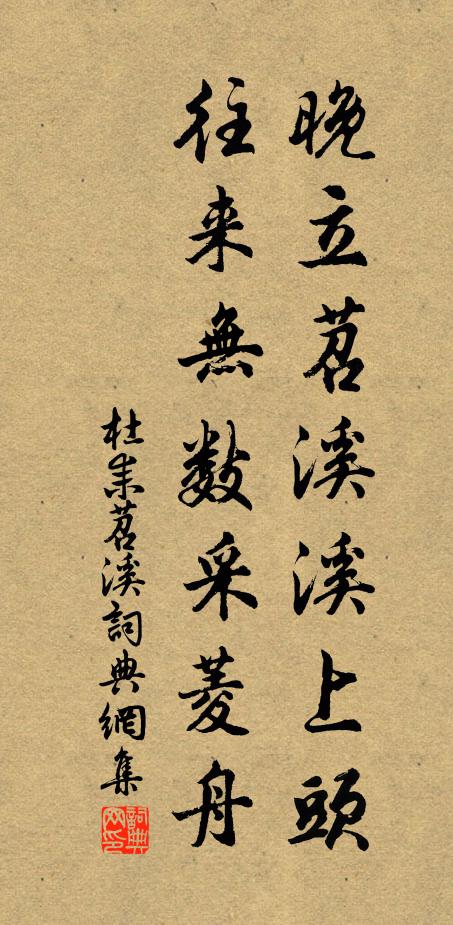 晚立苕溪溪上頭
往来無數采菱舟
杜耒苕溪詞典網集
詞典網印